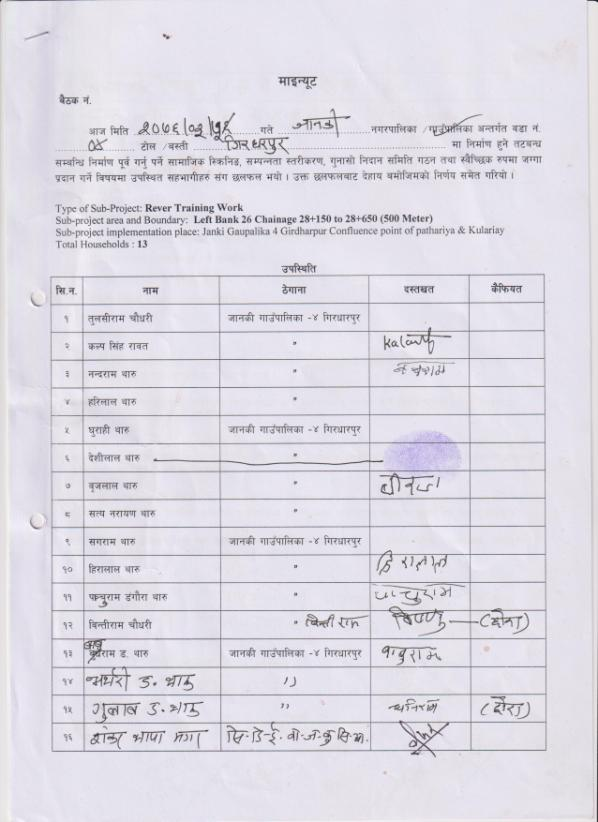 माइन्यूट
बैठक नं.
आज मिति २०७६/०३/१५ गते जानकी नगरपालिका /गाउँपालिका अन्तर्गत वडा नं.
०४ टोल /बस्ती गिरधरपुर मा निर्माण हुने तटबन्ध
सम्बन्धि निर्माण पूर्व गर्नु पर्ने सामाजिक स्किनिङ, सम्पन्नता स्तरीकरण, गुनासो निदान समिति गठन तथा स्वैच्छिक रुपमा जग्गा
प्रदान गर्ने विषयमा उपस्थित सहभागीहरु संग छलफल भयो । उक्त छलफलबाट देहाय बमोजिमको निर्णय समेत गरियो ।
Type of Sub-Project: Rever Training Work
Sub-project area and Boundary: Left Bank 26 Chainage 28+150 to 28+650 (500 Meter)
Sub-project implementation place: Janki Gaupalika 4 Girdharpur Confluence point of pathariya & Kulariay
Total Households : 13
उपस्थिति
सि.न. नाम ठेगाना दस्तखत कैफियत
१ तुलसीराम चौधरी जानकी गाउंपालिका -४ गिरधारपुर
२ कल्प सिंह रावत "
३ नन्दराम थारु " नन्दराम
४ हरिलाल थारु "
५ घुराही थारु जानकी गाउंपालिका -४ गिरधारपुर
६ देशीलाल थारु "
७ बृजलाल थारु "
८ सत्य नारायण थारु "
९ सगराम थारु जानकी गाउंपालिका -४ गिरधारपुर
१० हिरालाल थारु " हिरालाल
११ पाचुराम डंगौरा थारु " पाचुराम
१२ बिन्तीराम चौधरी " बिन्ती राम विष्णु (छोरा)
१३ बाबुराम ड. थारु जानकी गाउंपालिका -४ गिरधारपुर बाबुराम
१४ ड. थारु "
१५ गुलाब ड. थारु " (छोरा)
१६ शंकर थापा मगर सि.डि.ई. वी.ज.कु.सि.आ.